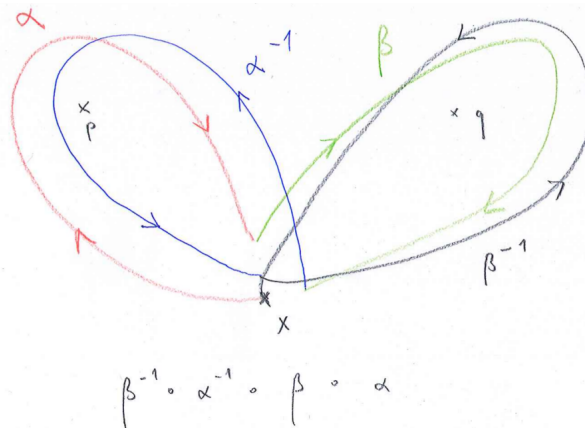 α
α⁻¹
β
× p
× q
β⁻¹
×
x
β⁻¹ ∘ α⁻¹ ∘ β ∘ α